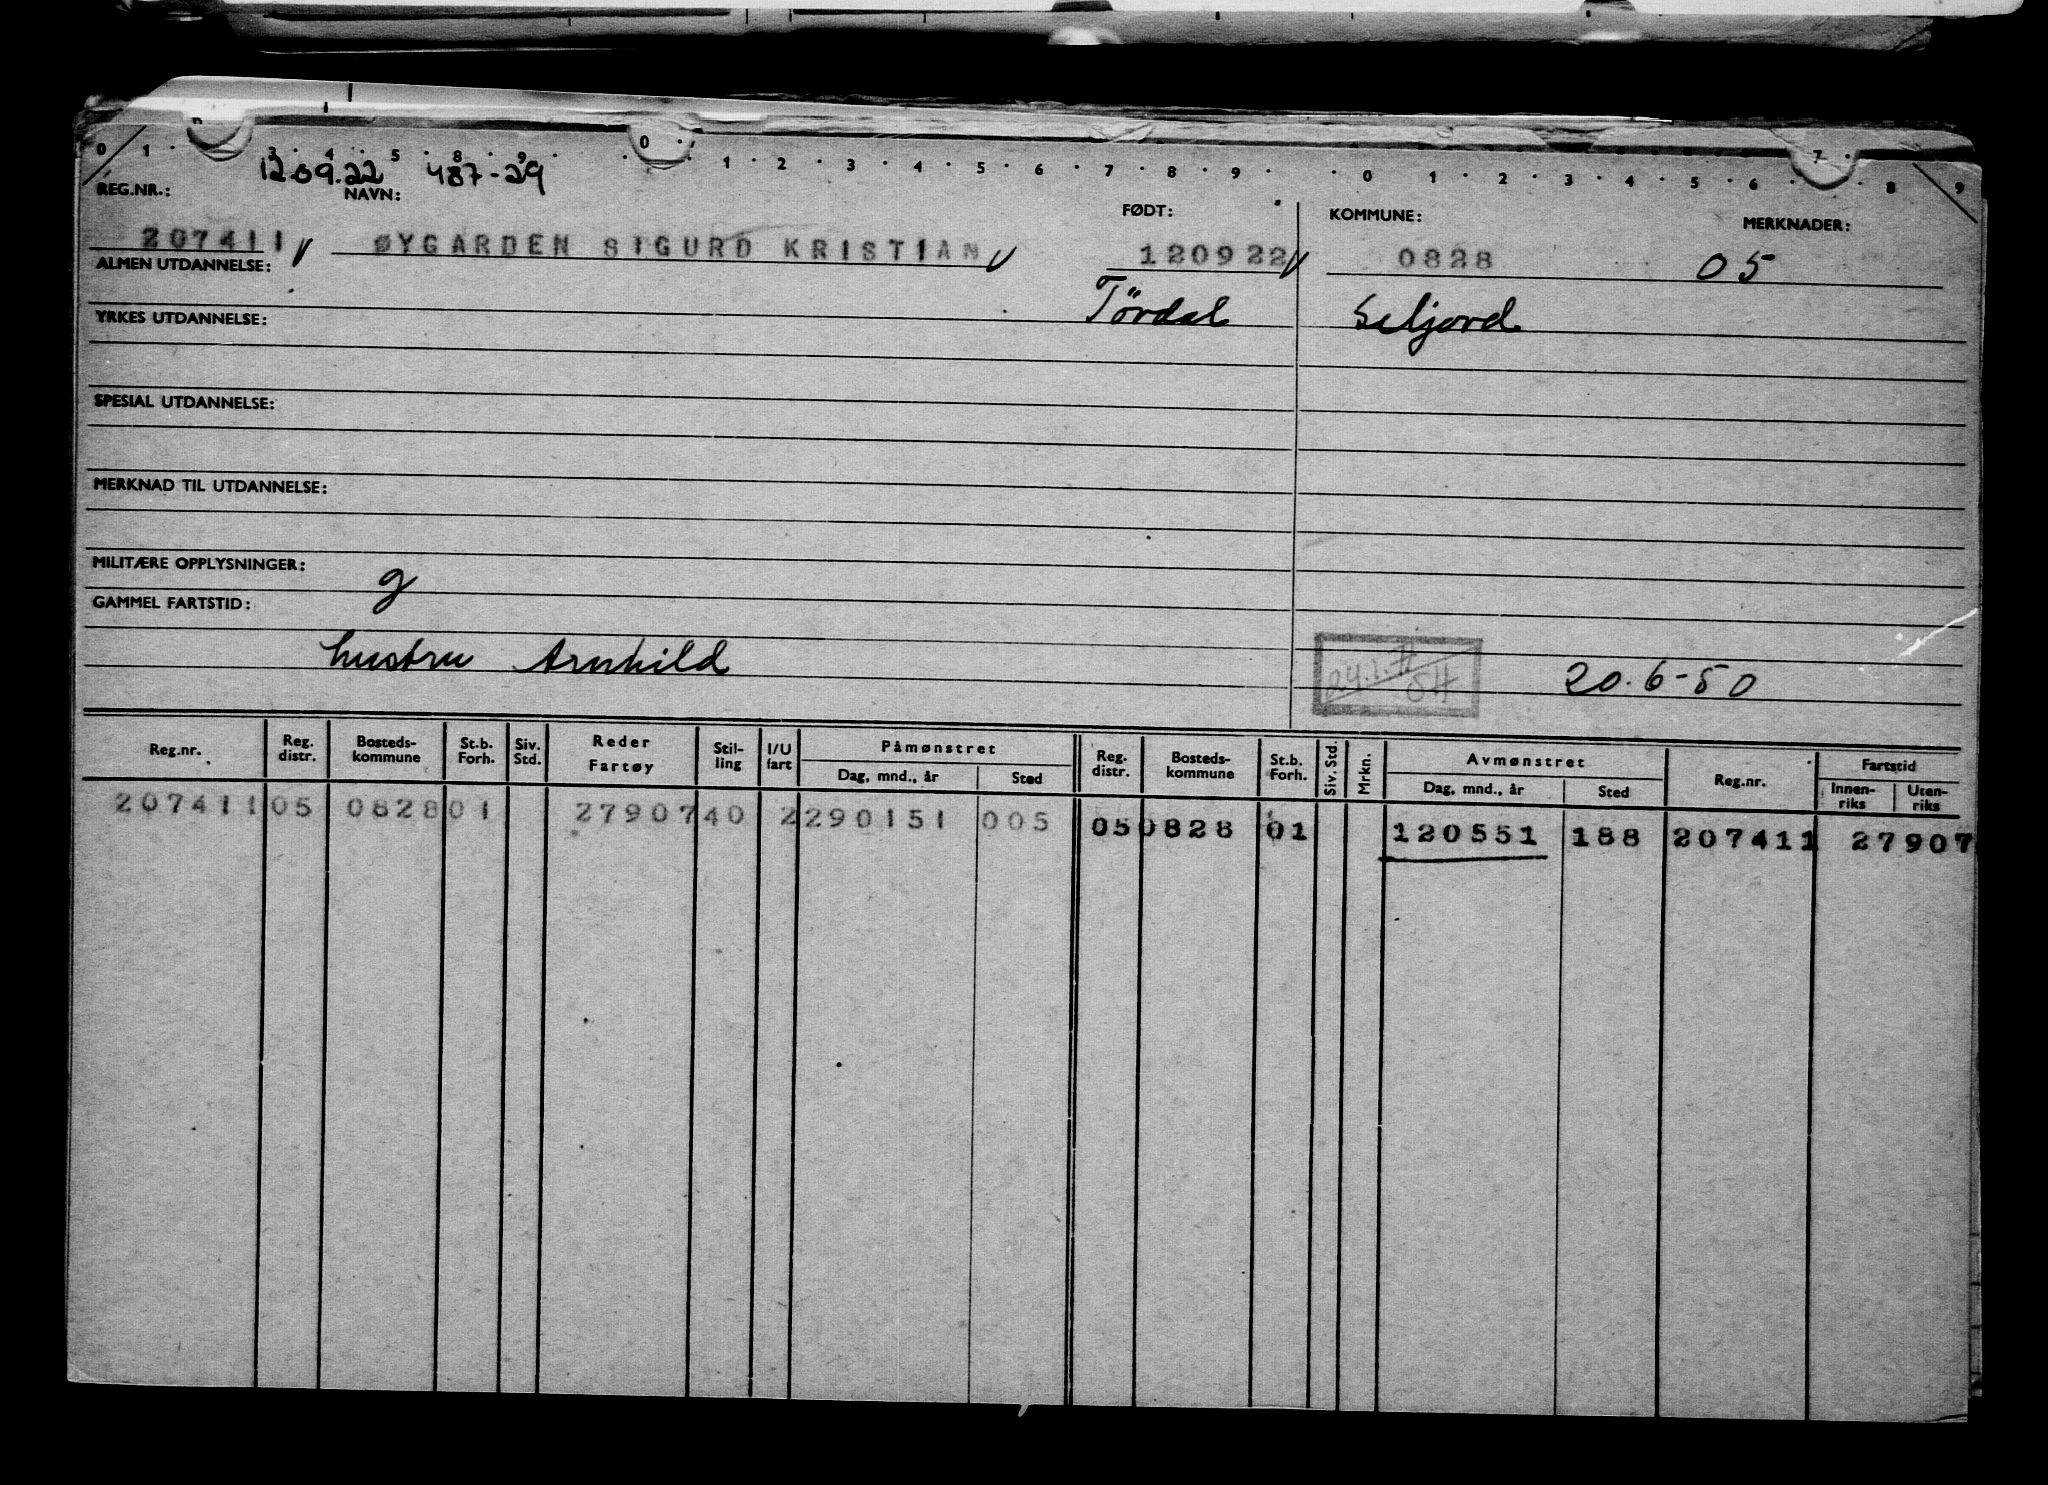 0 1 3 4 5 8 9 0 1 2 3 4 5 6 7 8 9 0 1 2 3 4 5 6 7 8 9
120922 487-29
REG.NR.: NAVN: FØDT: KOMMUNE: MERKNADER:
207411 ØYGARDEN SIGURD KRISTIAN 120922 0828 05
ALMEN UTDANNELSE:
Tördal Seljord
YRKES UTDANNELSE:
SPESIAL UTDANNELSE:
MERKNAD TIL UTDANNELSE:
MILITÆRE OPPLYSNINGER: g
GAMMEL FARTSTID:
hustru Arnhild
20.6-50
Reg.nr. Reg. distr. Bosteds-kommune St.b. Forh. Siv. Std. Reder Fartøy Stil-ling I/U fart Påmønstret Dag, mnd., år Sted Reg. distr. Bosteds-kommune St.b. Forh. Siv. Std. Mrkn. Avmønstret Dag, mnd., år Sted Reg.nr. Fartstid Innen-riks Uten-riks
207411 05 0828 01 27907 40 2 290151 005 05 0828 01 120551 188 207411 27907